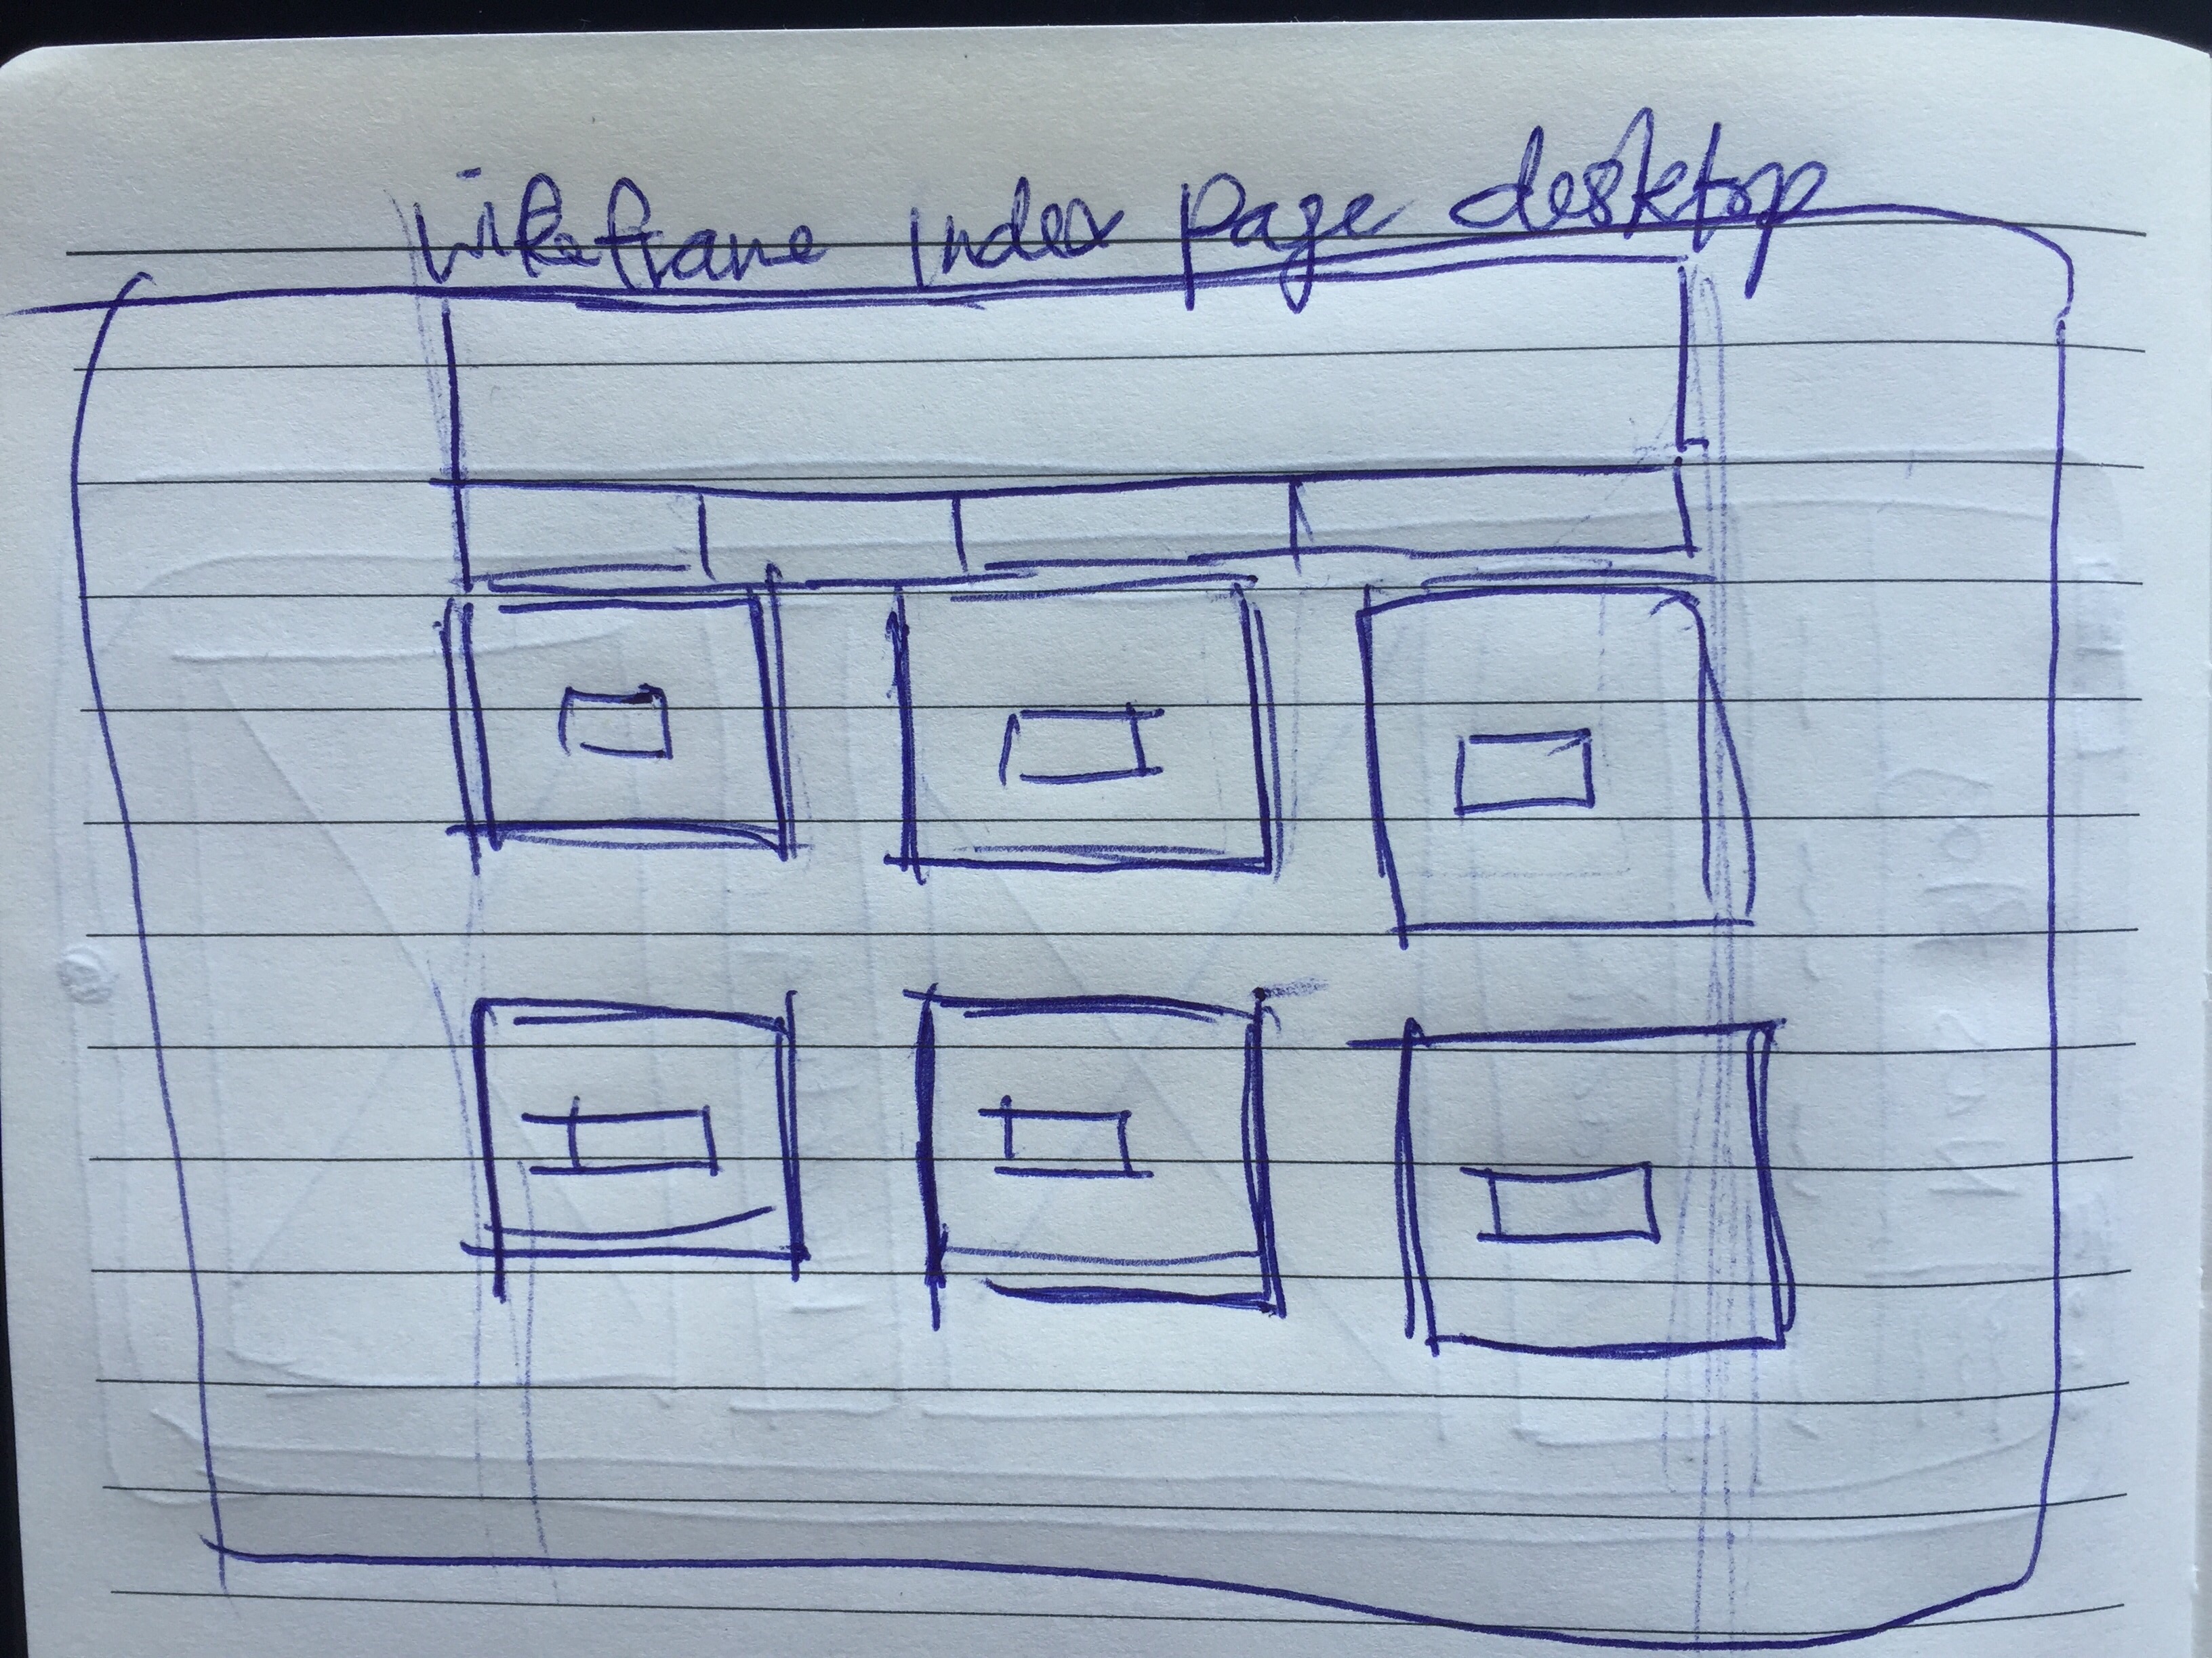 wireframe index page desktop